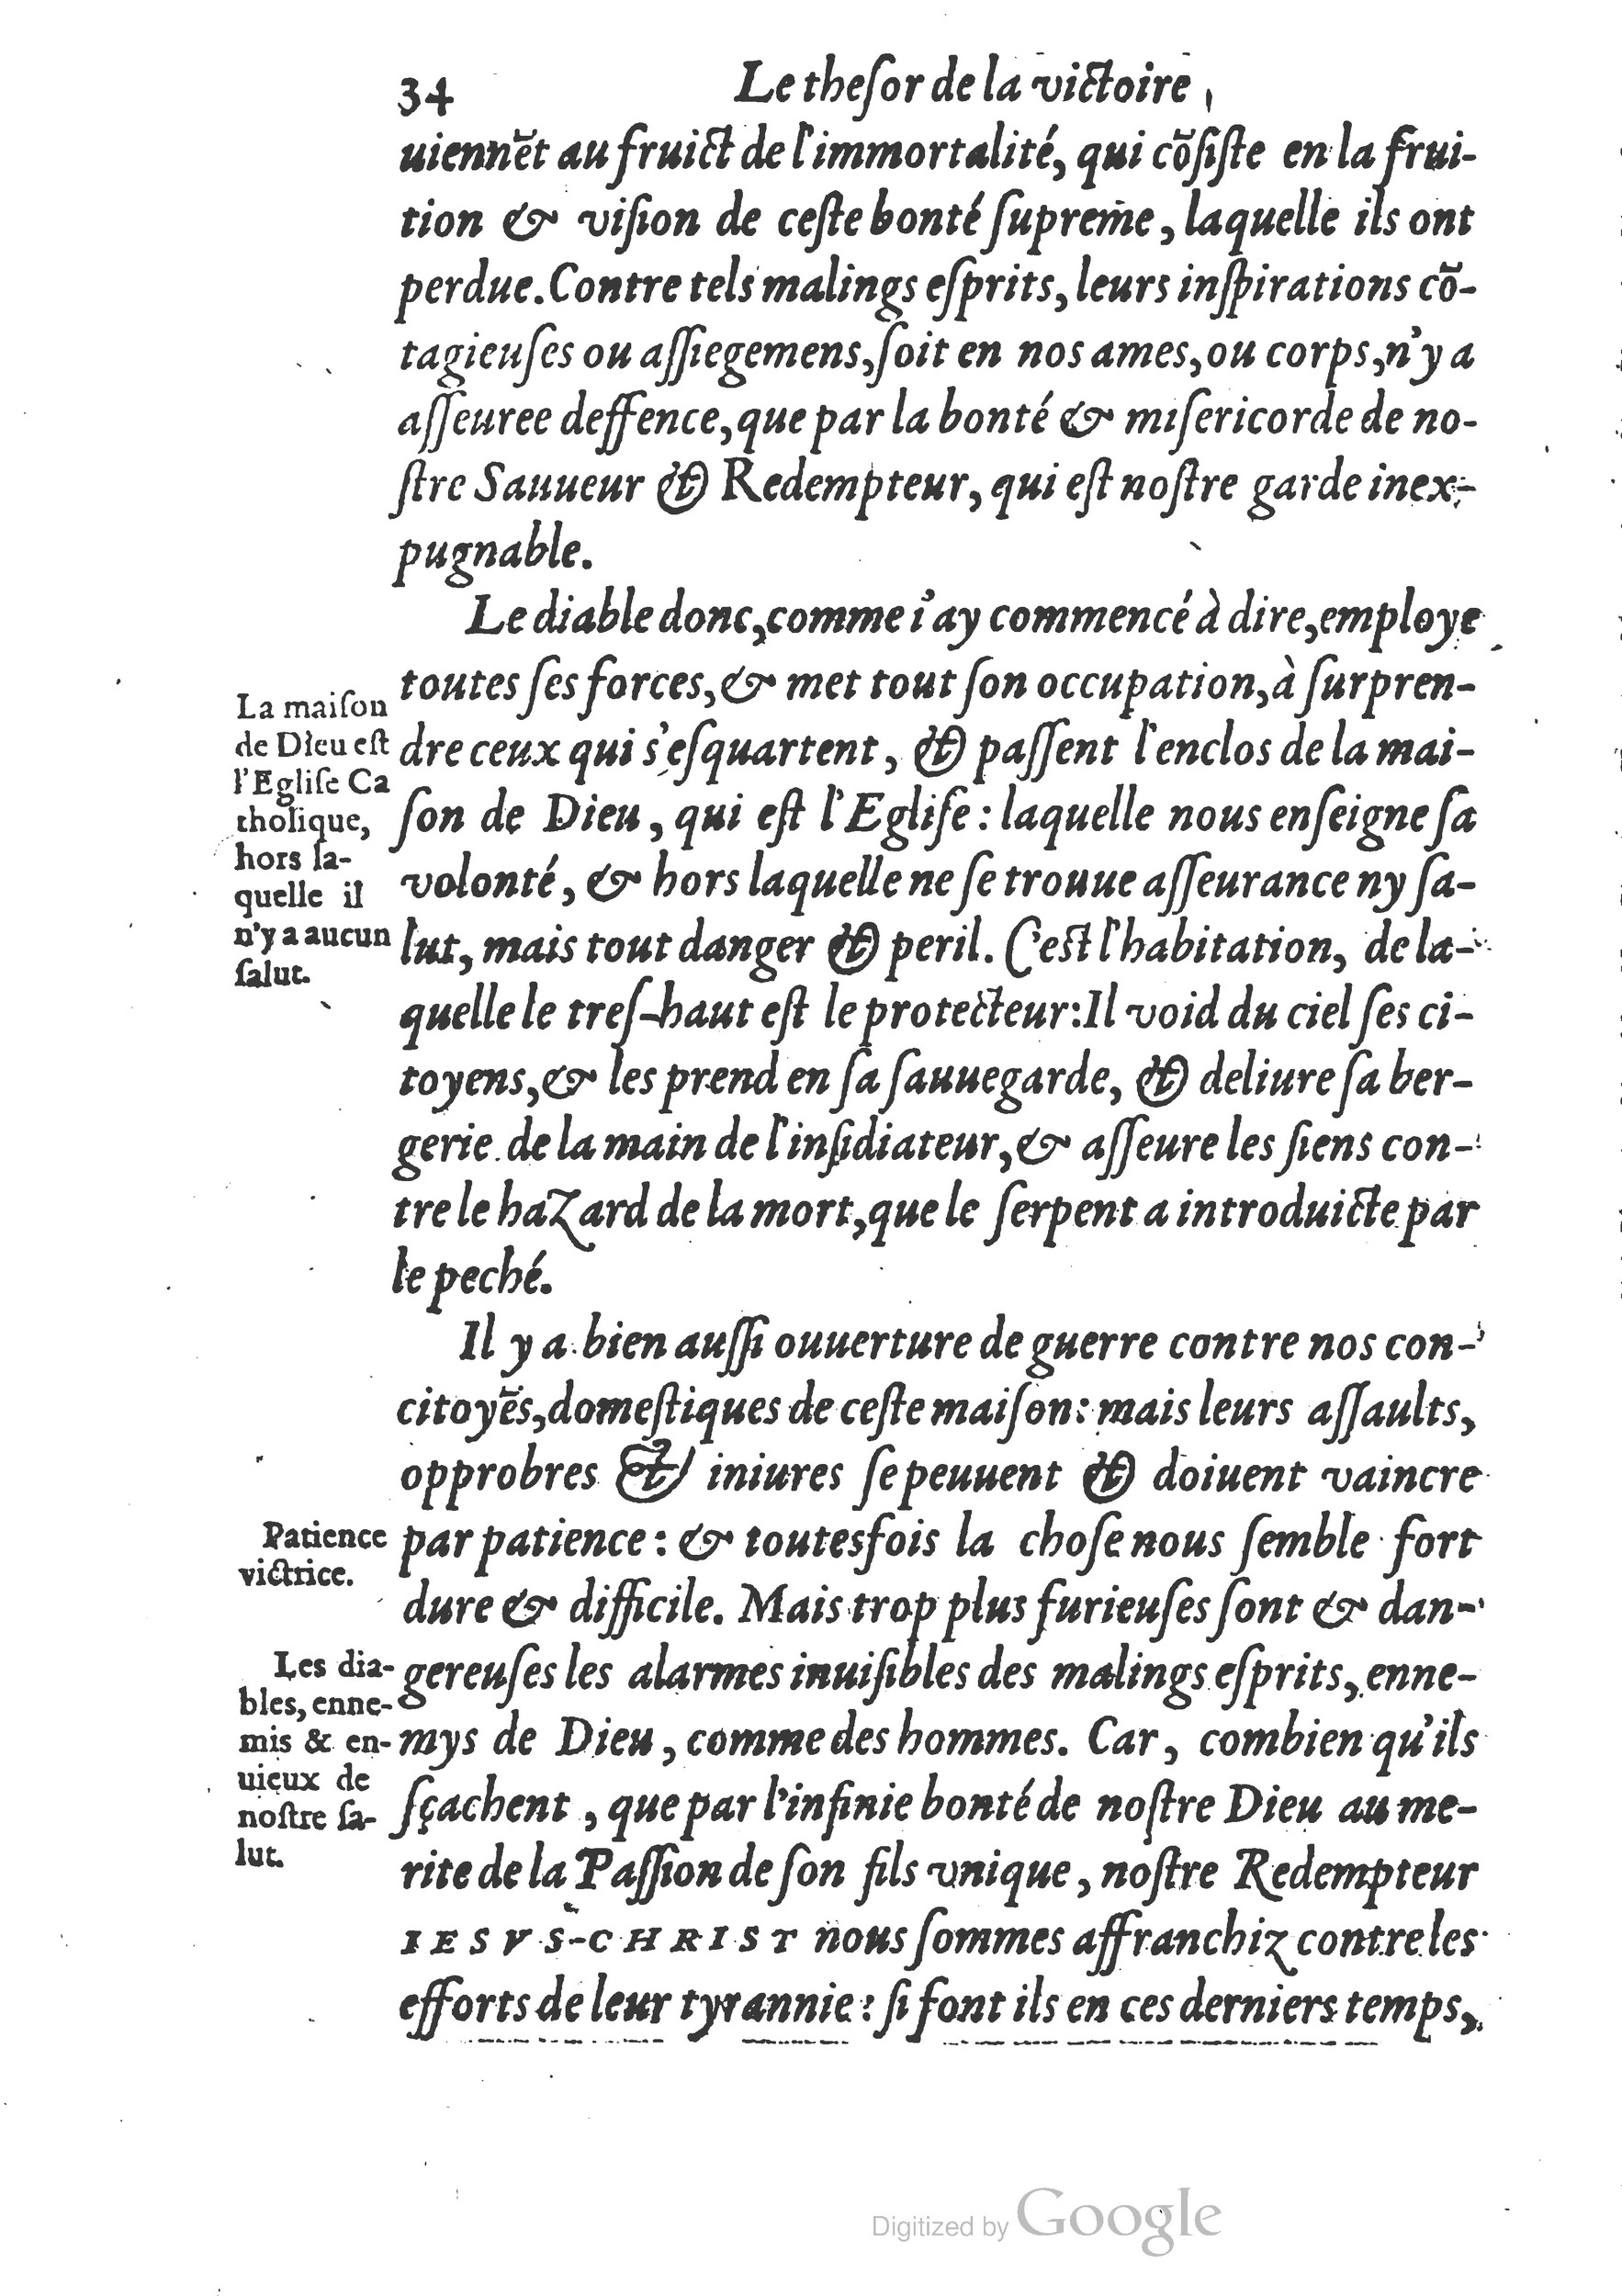 34
Le theſor de la victoire
uiennẽt au fruict de l'immortalité, qui cõſiſte en la frui-
tion & viſion de ceſte bonté ſupreme, laquelle ils ont
perdue. Contre tels malings eſprits, leurs inſpirations cõ-
tagieuſes ou aſſiegemens, ſoit en nos ames, ou corps, n'y a
aſſeuree deffence, que par la bonté & miſericorde de no-
ſtre Sauueur & Redempteur, qui eſt noſtre garde inex-
pugnable.
Le diable donc, comme i'ay commencé à dire, employe
toutes ſes forces, & met tout ſon occupation, à ſurpren-
dre ceux qui s'eſquartent, & paſſent l'enclos de la mai-
ſon de Dieu, qui eſt l'Egliſe : laquelle nous enſeigne ſa
volonté, & hors laquelle ne ſe trouue aſſeurance ny ſa-
lut, mais tout danger & peril. C'est l'habitation, de la-
quelle le treſ-haut eſt le protecteur: Il void du ciel ſes ci-
toyens, & les prend en ſa ſauuegarde, & deliure ſa ber-
gerie de la main de l'inſidiateur, & aſſeure les ſiens con-
tre le hazard de la mort, que le ſerpent a introduicte par
le peché.
La maiſon
de Dieu eſt
l'Egliſe Ca
tholique,
hors la-
quelle il
n'y a aucun
ſalut.
Il y a bien auſſi ouuerture de guerre contre nos con-
citoyẽs, domeſtiques de ceſte maiſon: mais leurs aſſaults,
opprobres & iniures ſe peuuent & doiuent vaincre
par patience : & toutesfois la choſe nous ſemble fort
dure & difficile. Mais trop plus furieuſes ſont & dan-
gereuſes les alarmes inuiſibles des malings eſprits, enne-
mys de Dieu, comme des hommes. Car, combien qu'ils
ſçachent, que par l'infinie bonté de noſtre Dieu au me-
rite de la Paſſion de ſon fils vnique, noſtre Redempteur
IESVS-CHRIST nous ſommes affranchiz contre les
efforts de leur tyrannie : ſi font ils en ces derniers temps,
Patience
victrice.
Les dia-
bles, enne-
mis & en-
uieux de
noſtre ſa-
lut.
Digitized by Google